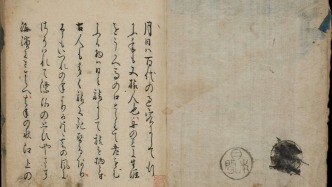 月日ハ百代の過客にして行
かふ年も又旅人也舟の上に生涯
をうかへ馬の口とらえて老をむか
ふる物ハ日々旅にして旅を栖とす
古人も多く旅に死せるあり予
もいつれの年よりか片雲の風に
さそはれて漂泊の思ひやます
海濱にさすらへ去年の秋江上の